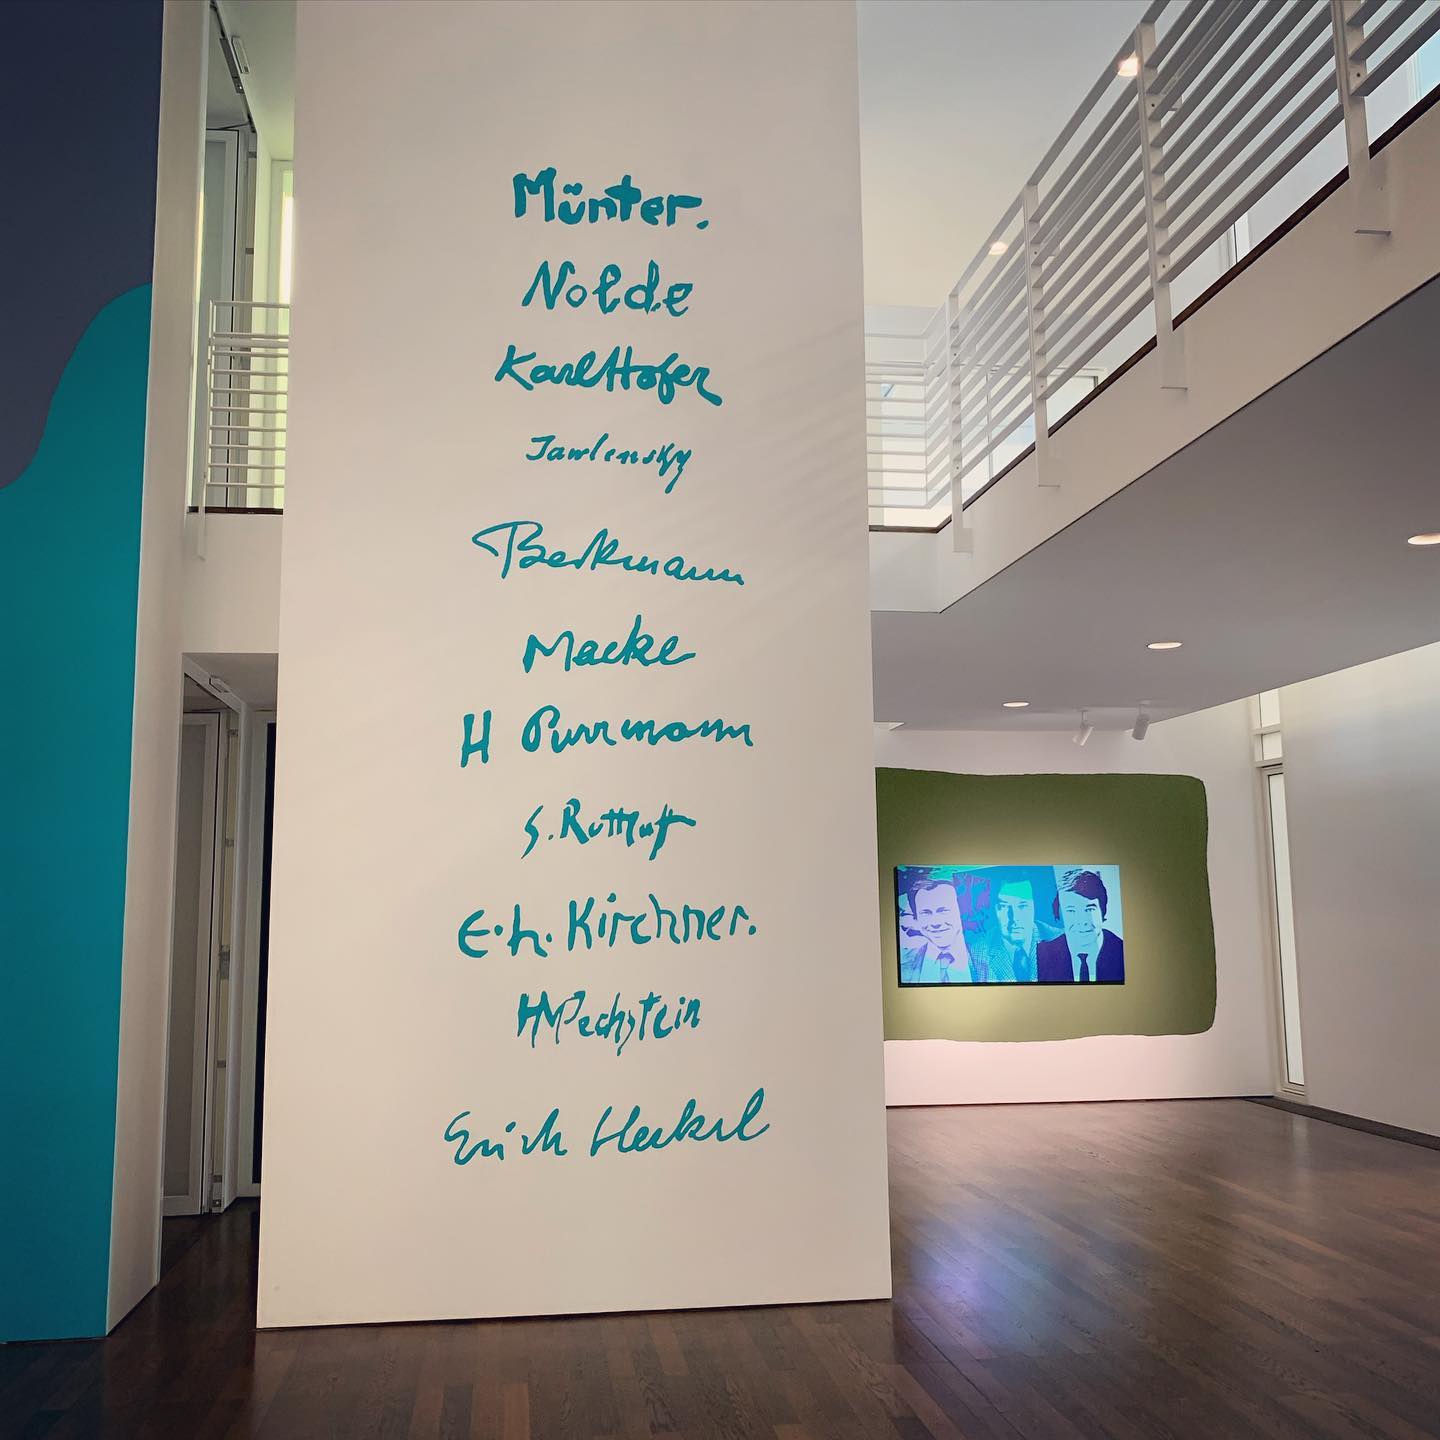 Münter.
Nolde
Karl Hofer
Jawlensky
Beckmann
Macke
H Purrmann
S. Rottluff
E. L. Kirchner.
HMPechstein
Erich Heckel